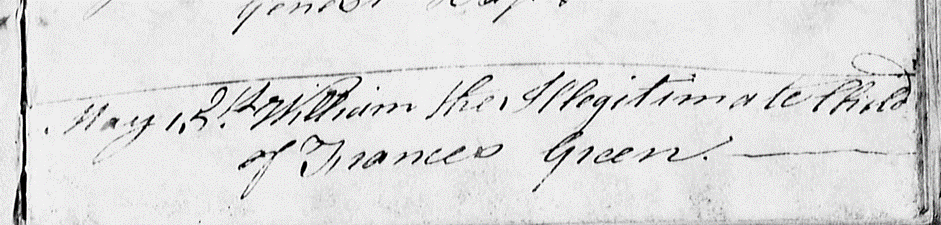 May 12th William the Illegitimate Child
of Frances Green.